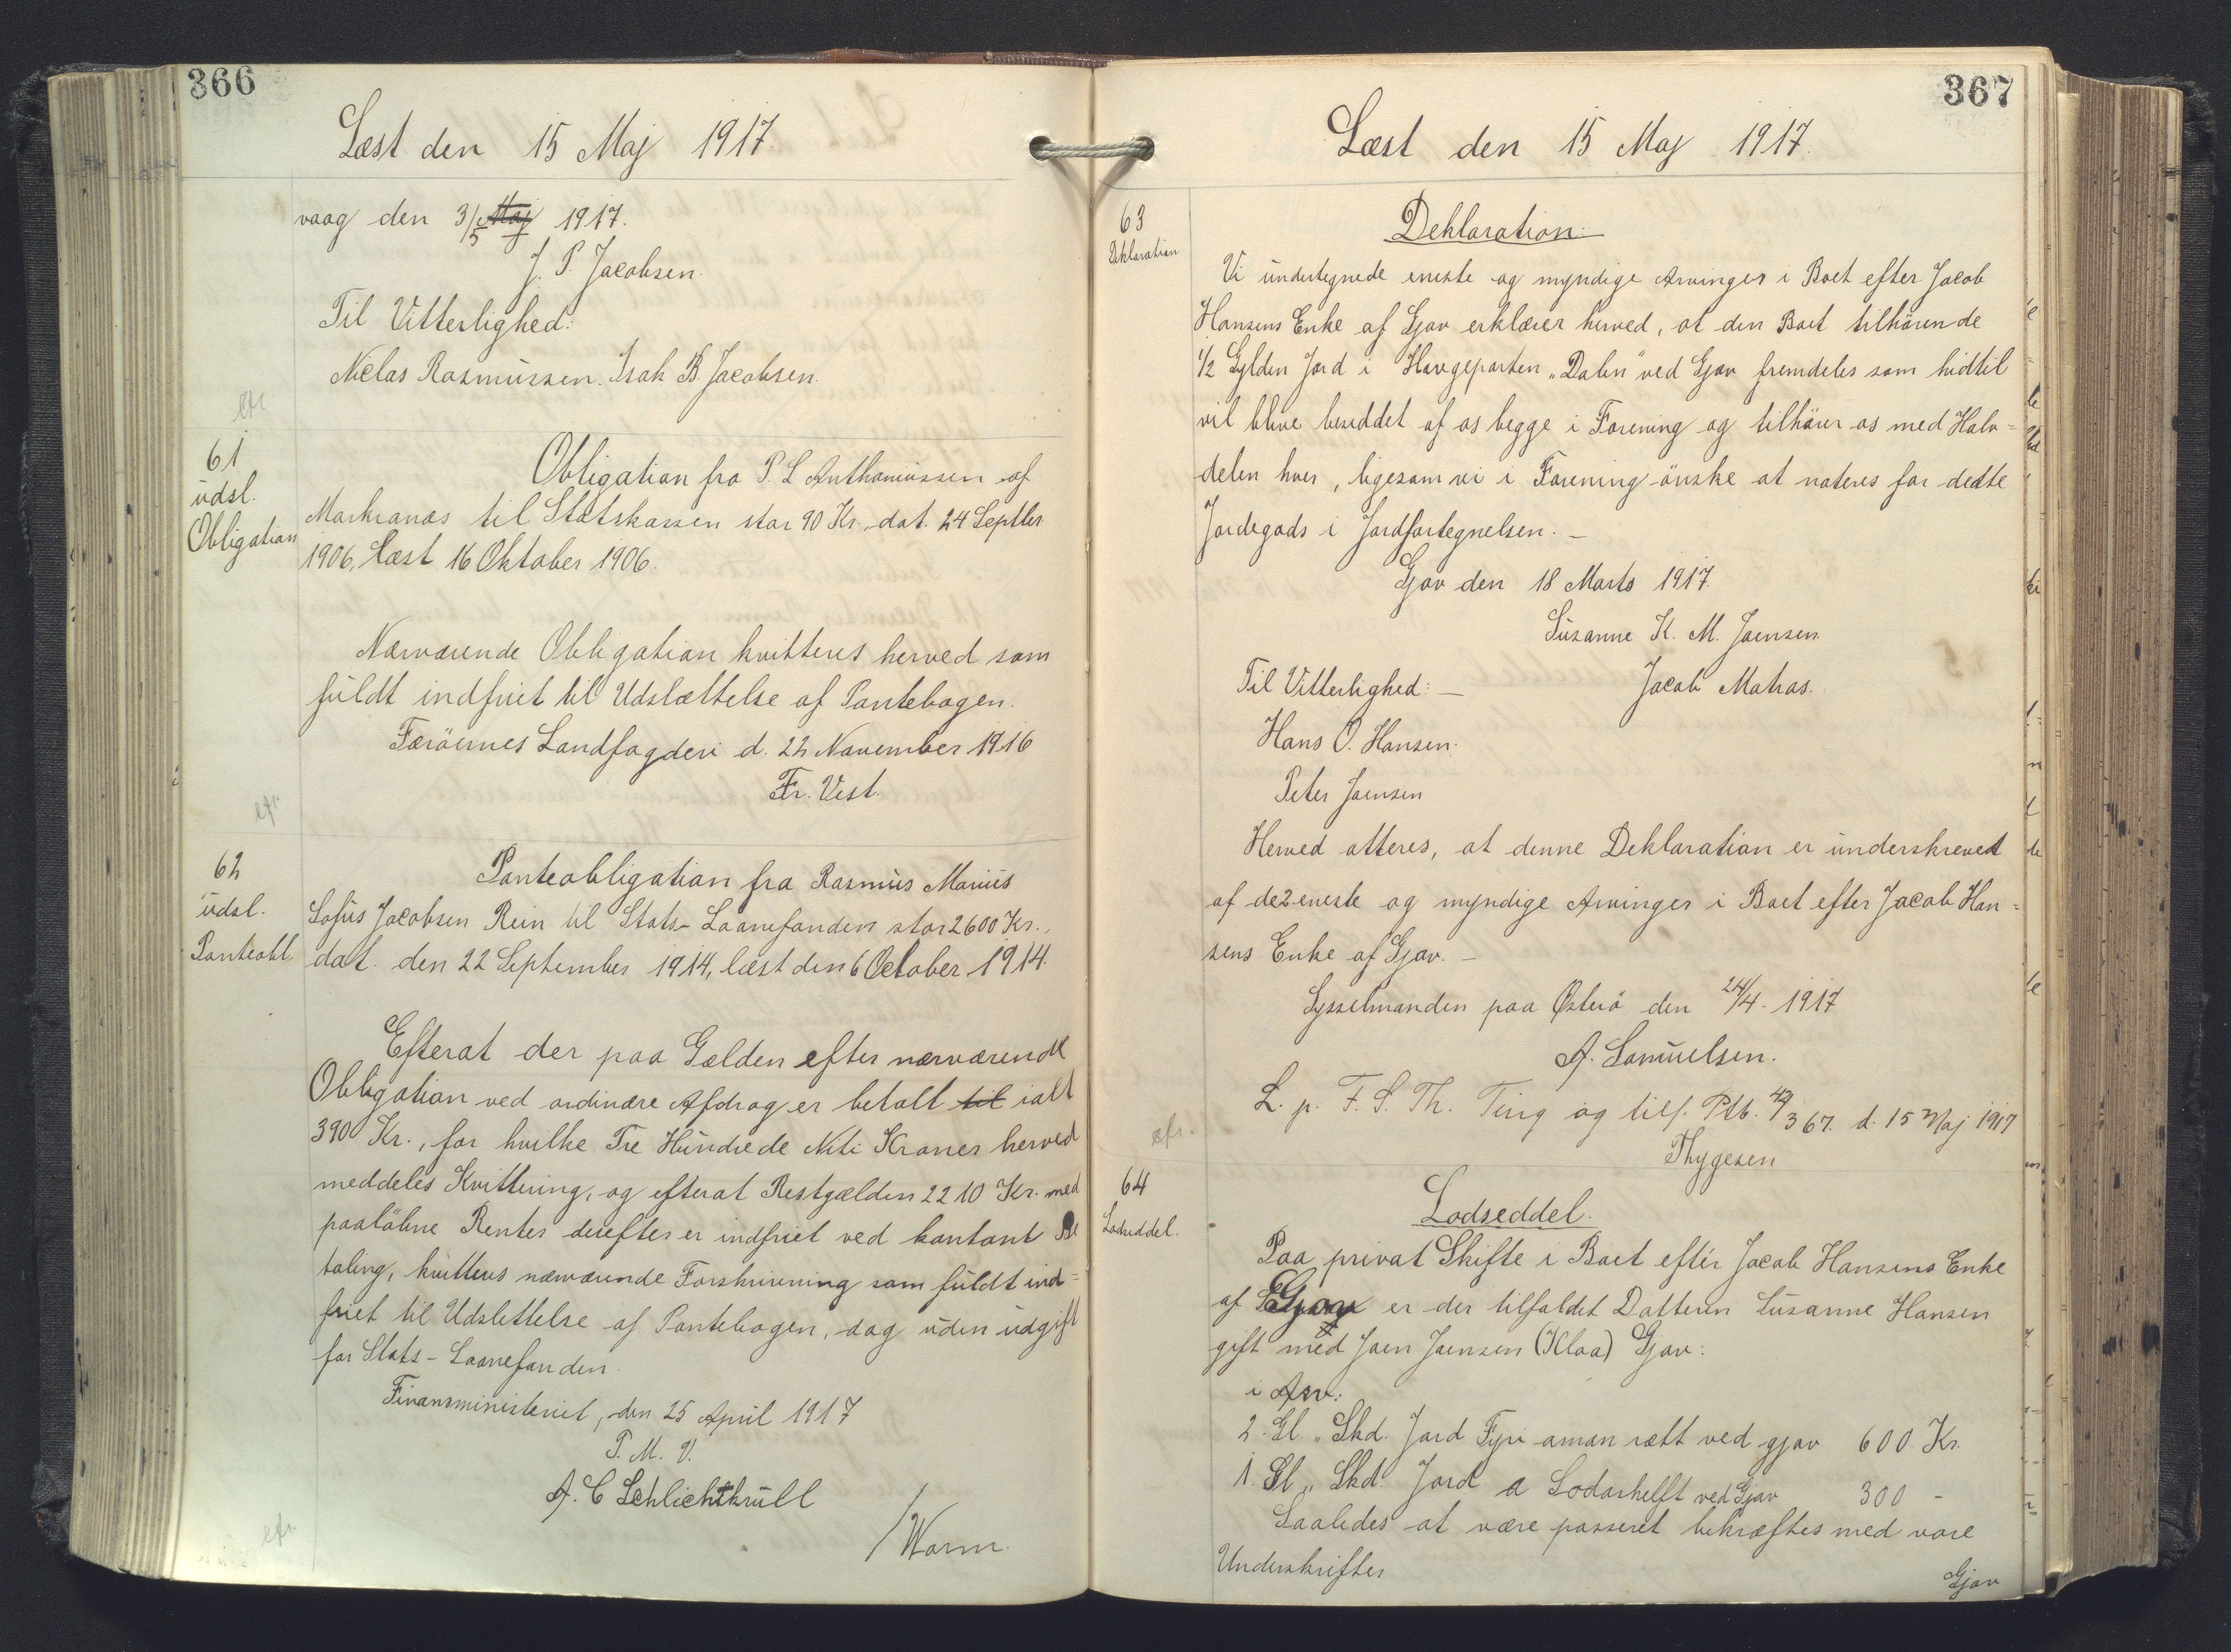 366
Læst den 15 Maj 1917.
vaag den 3/5 Maj 1917.
J. P. Jacobsen.
Til Vitterlighed:
Niclas Rasmussen. Isak B. Jacobsen.
cfr.
61
udsl.
Obligation
Obligation fra P. L Anthoniussen af
Morkranæs til Statskassen stor 90 Kr. dat. 24 Septbr
1906, læst 16 Oktober 1906.
Nærværende Obligation kvitteres herved som
fuldt indfriet til Udslættelse af Pantebogen.
Færöernes Landfogderi d. 22 November 1916
Fr. Vest.
cfr.
62
udsl.
Panteobl.
Panteobligation fra Rasmus Marius
Sofus Jacobsen Rein til Stats-Laanefonden stor 2600 Kr.,
dat. den 22 September 1914, læst den 6 October 1914.
Efterat der paa Gælden efter nærværende
Obligation ved ordinære Afdrag er betalt til ialt
390 Kr., for hvilke Tre Hundrede Niti Kroner herved
meddeles Kvittering, og efterat Restgælden 2210 Kr. med
paaløbne Renter derefter er indfriet ved kontant Be
taling, kvitteres nærværende Forskrivning som fuldt ind=
friet til Udslettelse af Pantebogen, dog uden udgift
for Stats-Laanefonden.
Finansministeriet, den 25 April 1917
P. M. V.
A. C Schlichtkrull
/Worm.
cfr.
367
Læst den 15 Maj 1917.
63
Deklaration
Deklaration:
Vi undertegnede eneste og myndige Arvinger i Boet efter Jacob
Hansens Enke af Gjov erklærer herved, at den Boet tilhörende
1/2 Gylden Jord i Havgeparten "Dalin" ved Gjov fremdeles som hidtil
vil blive besiddet af os begge i Forening og tilhører os med Halv=
delen hver, ligesom vi i Forening önske at noteres for dette
Jordegods i Jordfortegnelsen. -
Gjov den 18 Marts 1917.
Susanne K. M. Joensen.
Til Vitterlighed: - Jacob Matras.
Hans O. Hansen.
Peter Joensen
Herved atteres, at denne Deklaration er underskrevet
af de 2 eneste og myndige Arvinger i Boet efter Jacob Han=
sens Enke af Gjov. -
Sysselmanden paa Østerö den 24/4 - 1917
A. Samuelsen.
L. p. F. S. Th. Ting og tilf. Ptb. 42/367. d. 15 Maj 1917
Thygesen
cfr.
64
Lodseddel.
Lodseddel.
Paa privat Skifte i Boet efter Jacob Hansens Enke
af Gjov er der tilfaldet Datteren Susanne Hansen
gift med Joen Joensen (Kloa) Gjov:
i Arv:
2. Gl. " Skd. Jord Fyri aman rætt ved gjov 600 Kr.
1. Gl " Skd. Jord a Lodarhelft ved Gjov 300 -
Saaledes at være passeret bekræftes med vore
Underskrifter
Gjov